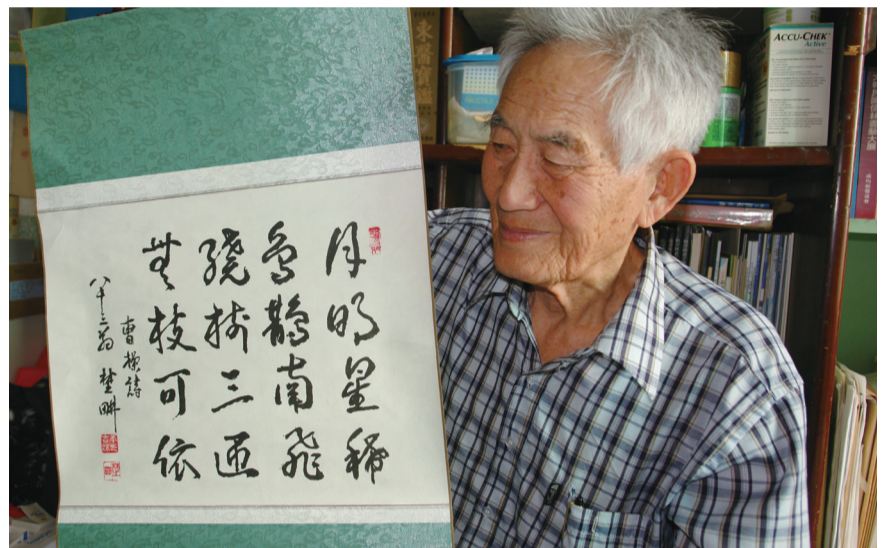 月明星稀
烏鵲南飛
繞樹三匝
無枝可依
曹操詩
八十三翁 楚畊
ACCU-CHEK
Active